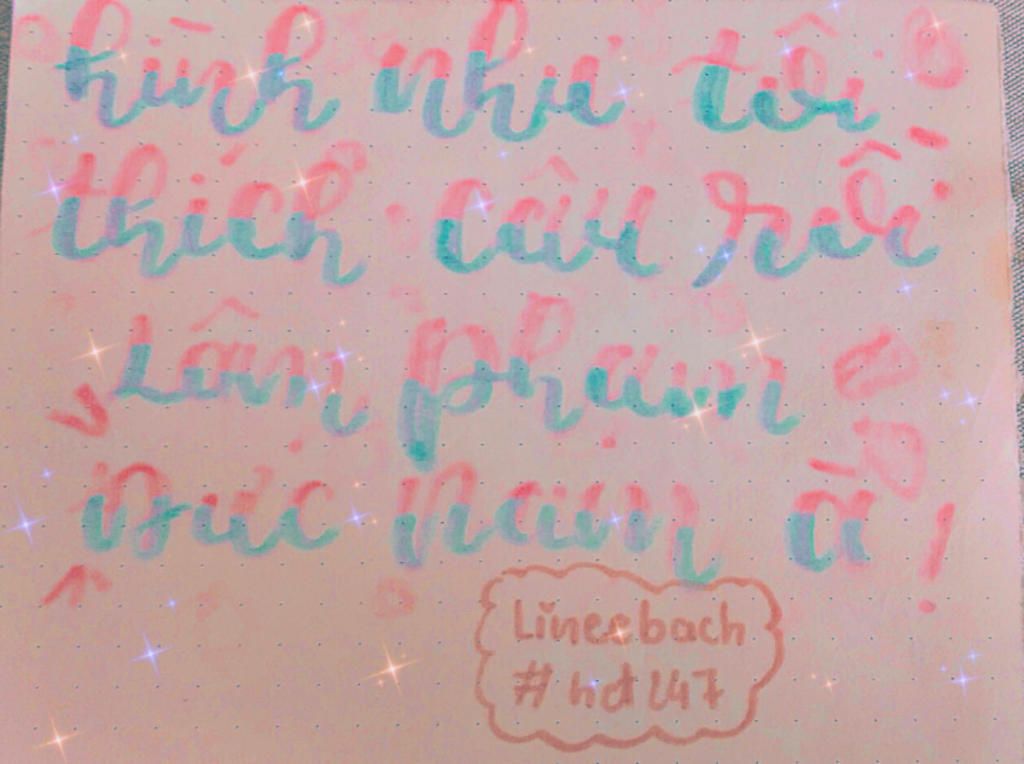 hình như tôi
thích cậu rồi
Lâm Phạm
Đức Nam à !
Lineebach
# hdt247